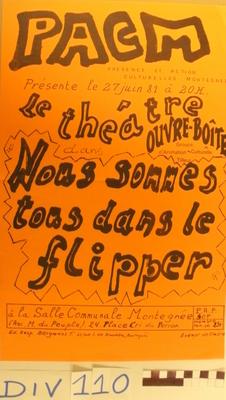 PACM
PRÉSENCE ET ACTION
CULTURELLES MONTEGNÉE
Présente le 27 juin 81 à 20H.
le théâtre
OUVRE-BOÎTE
Groupe
d'Animation Culturelle
dans
Nous sommes
tous dans le
flipper
à la Salle Communale Montegnée
(Anc. M. du Peuple) 24. Place Cri du Perron
Ed. resp.
DIV 110